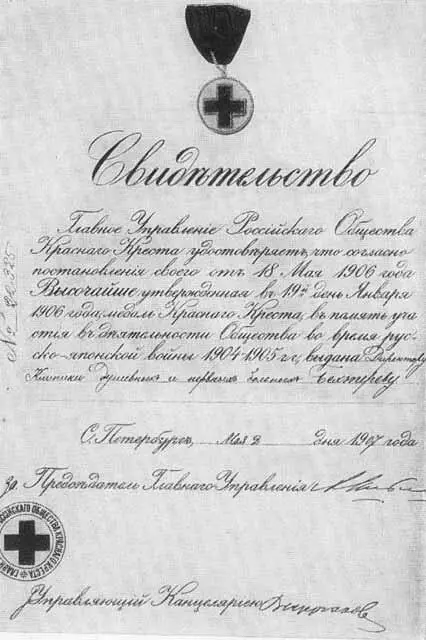 Свидѣтельство
Главное Управленіе Россійскаго Общества
Краснаго Креста удостовѣряетъ, что согласно
постановленія своего отъ 18 Мая 1906 года
Высочайше утвержденная въ 19й день Января
1906 года, медаль Краснаго Креста, въ память уча
стія въ дѣятельности Общества во время рус-
ско-японской войны 1904-1905 г.г., выдана Директору
Клиники душевныхъ и нервныхъ болѣзней Бехтереву
С. Петербургъ, Мая 2 дня 1907 года
за Предсѣдатель Главнаго Управленія
РОССІЙСКАГО ОБЩЕСТВА КРАСНАГО КРЕСТА
Управляющій Канцеляріею